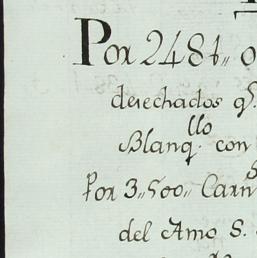 Por 2484,, o
desechados q.
Blanq.llo con
Por 3,,500,, Carn
del Amo S.